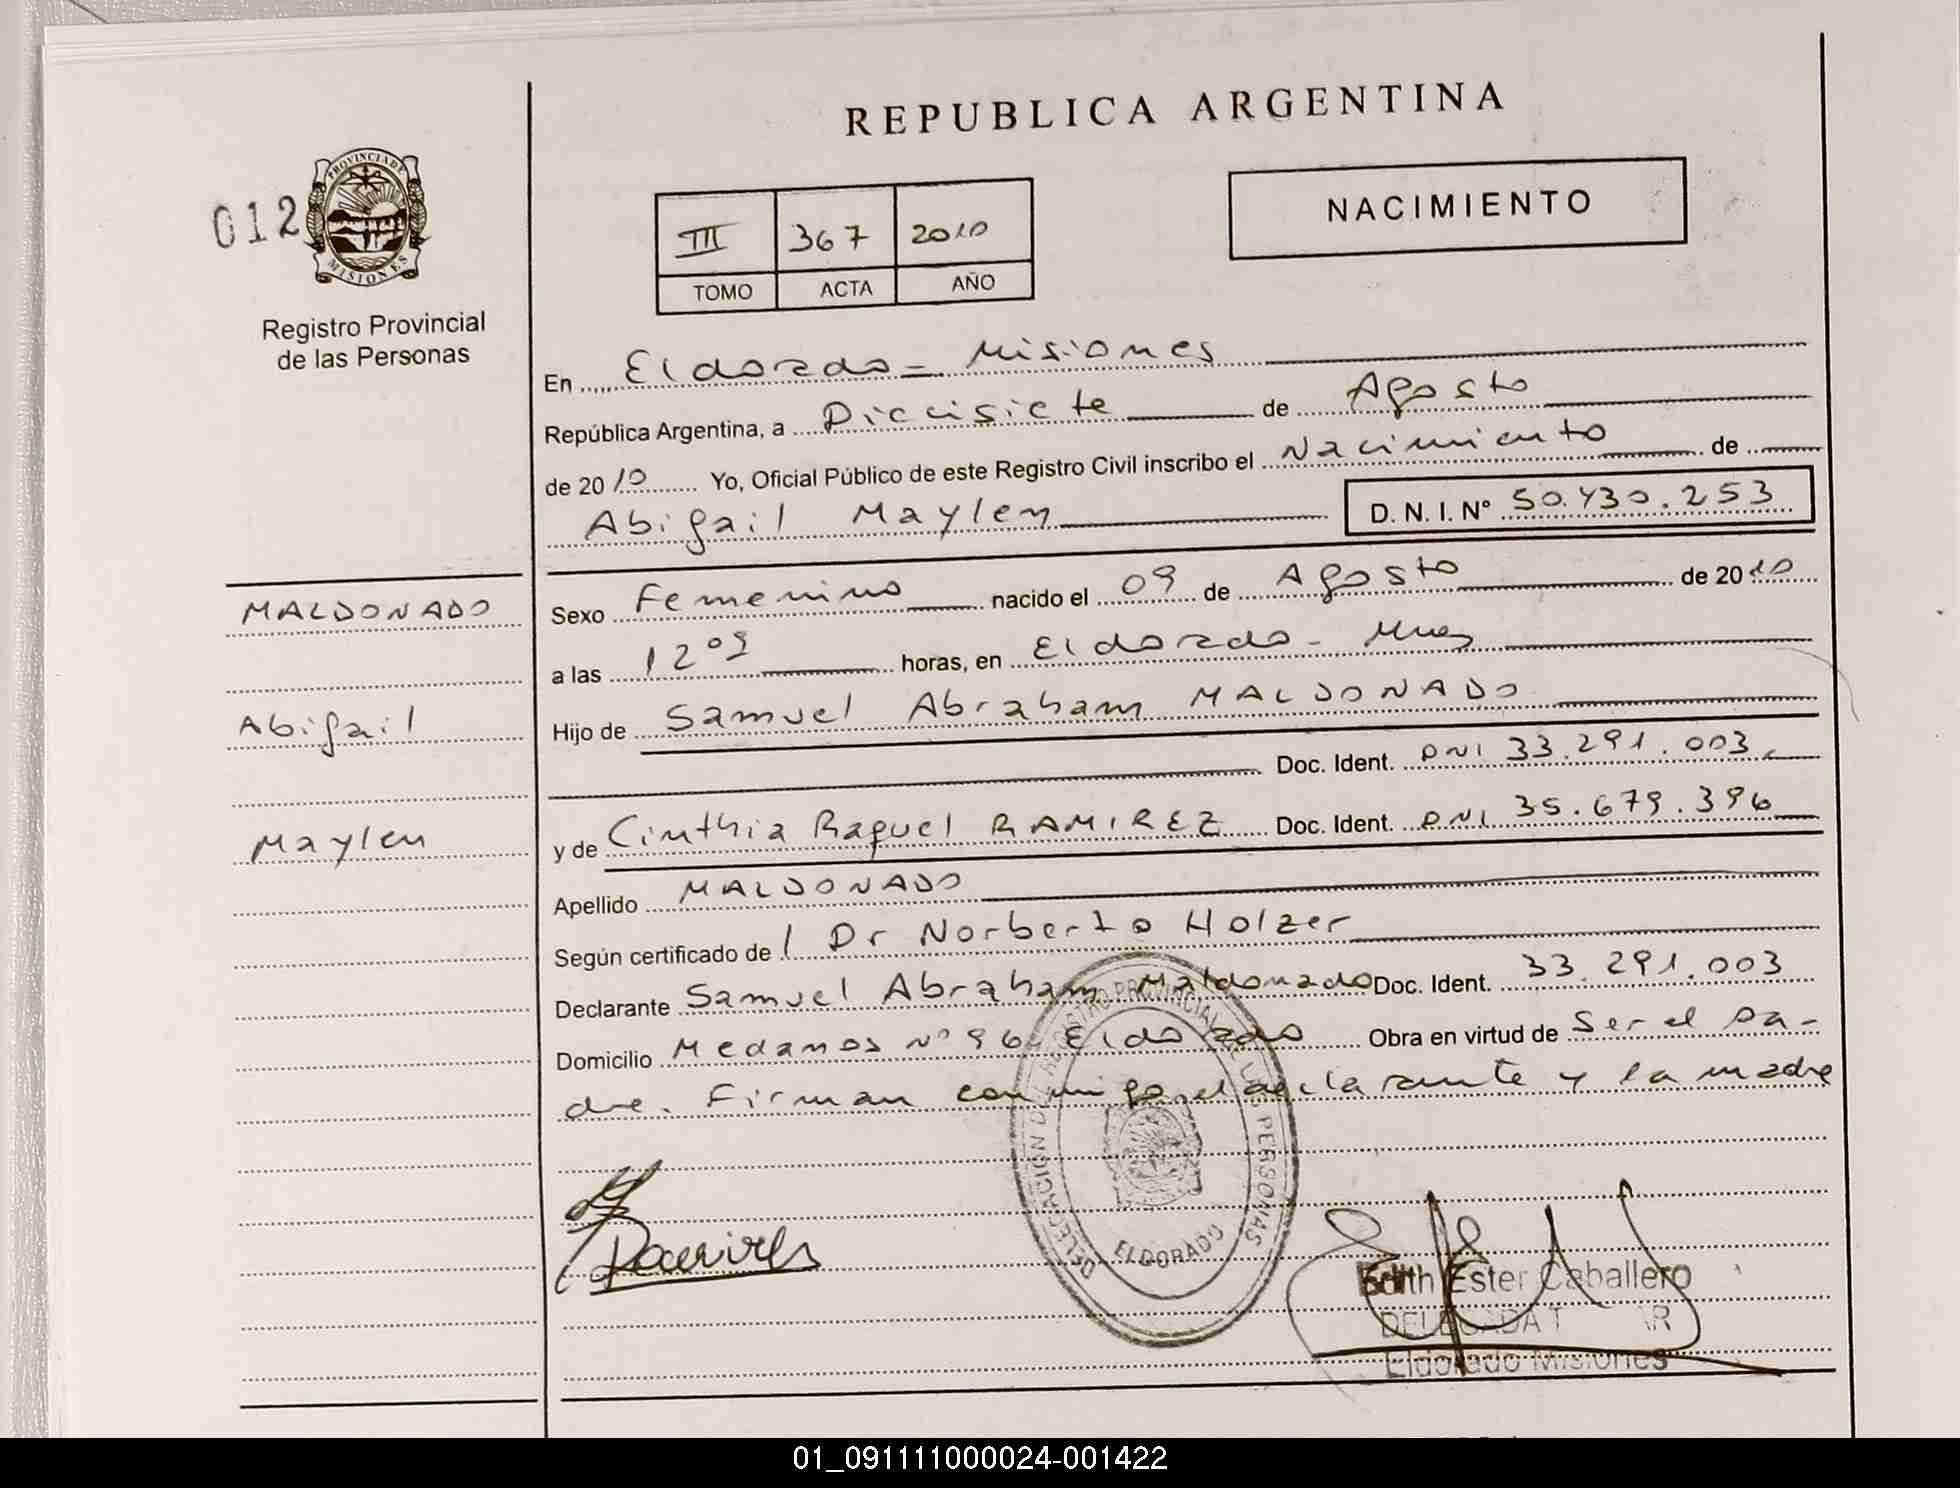 REPUBLICA ARGENTINA
012
PROVINCIA DE
MISIONES
Registro Provincial
de las Personas
III 367 2010
TOMO ACTA AÑO
NACIMIENTO
En Eldorado - Misiones
República Argentina, a Diecisiete de Agosto
de 2010 Yo, Oficial Público de este Registro Civil inscribo el Nacimiento de
Abigail Maylen D. N. I. Nº 50.430.253
MALDONADO
Abigail
Maylen
Sexo Femenino nacido el 09 de Agosto de 2010
a las 12 09 horas, en Eldorado - Mnes
Hijo de Samuel Abraham MALDONADO
Doc. Ident. DNI 33.291.003
y de Cinthia Raquel RAMIREZ Doc. Ident. DNI 35.679.396
Apellido MALDONADO
Según certificado de Dr Norberto Holzer
Declarante Samuel Abraham Maldonado Doc. Ident. 33.291.003
Domicilio Medanos Nº 96 Eldorado Obra en virtud de Ser el pa-
dre. Firman conmigo el declarante y la madre
DELEGACIÓN DEL REGISTRO PROVINCIAL DE LAS PERSONAS
ELDORADO
Edith Ester Caballero
DELEGADA
Eldorado Misiones
01_091111000024-001422